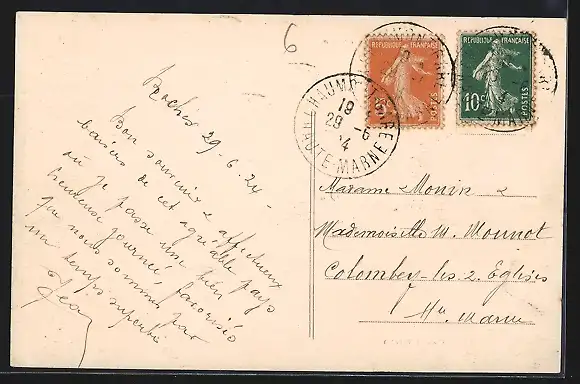 6
Roches 29-6-24-
Bon souvenir & affectueux
baisers de cet agréable pays
où je passe une bien
heureuse journée
que nous sommes favorisés par
un temps superbe
Jean
REPUBLIQUE FRANÇAISE
POSTES
REPUBLIQUE FRANÇAISE
10c
POSTES
CHAUMONT-GARE
19
29 -6
4
HAUTE-MARNE
Madame Monin &
Mademoiselle M. Mounot
Colombey-les-2-Eglises
Hte Marne